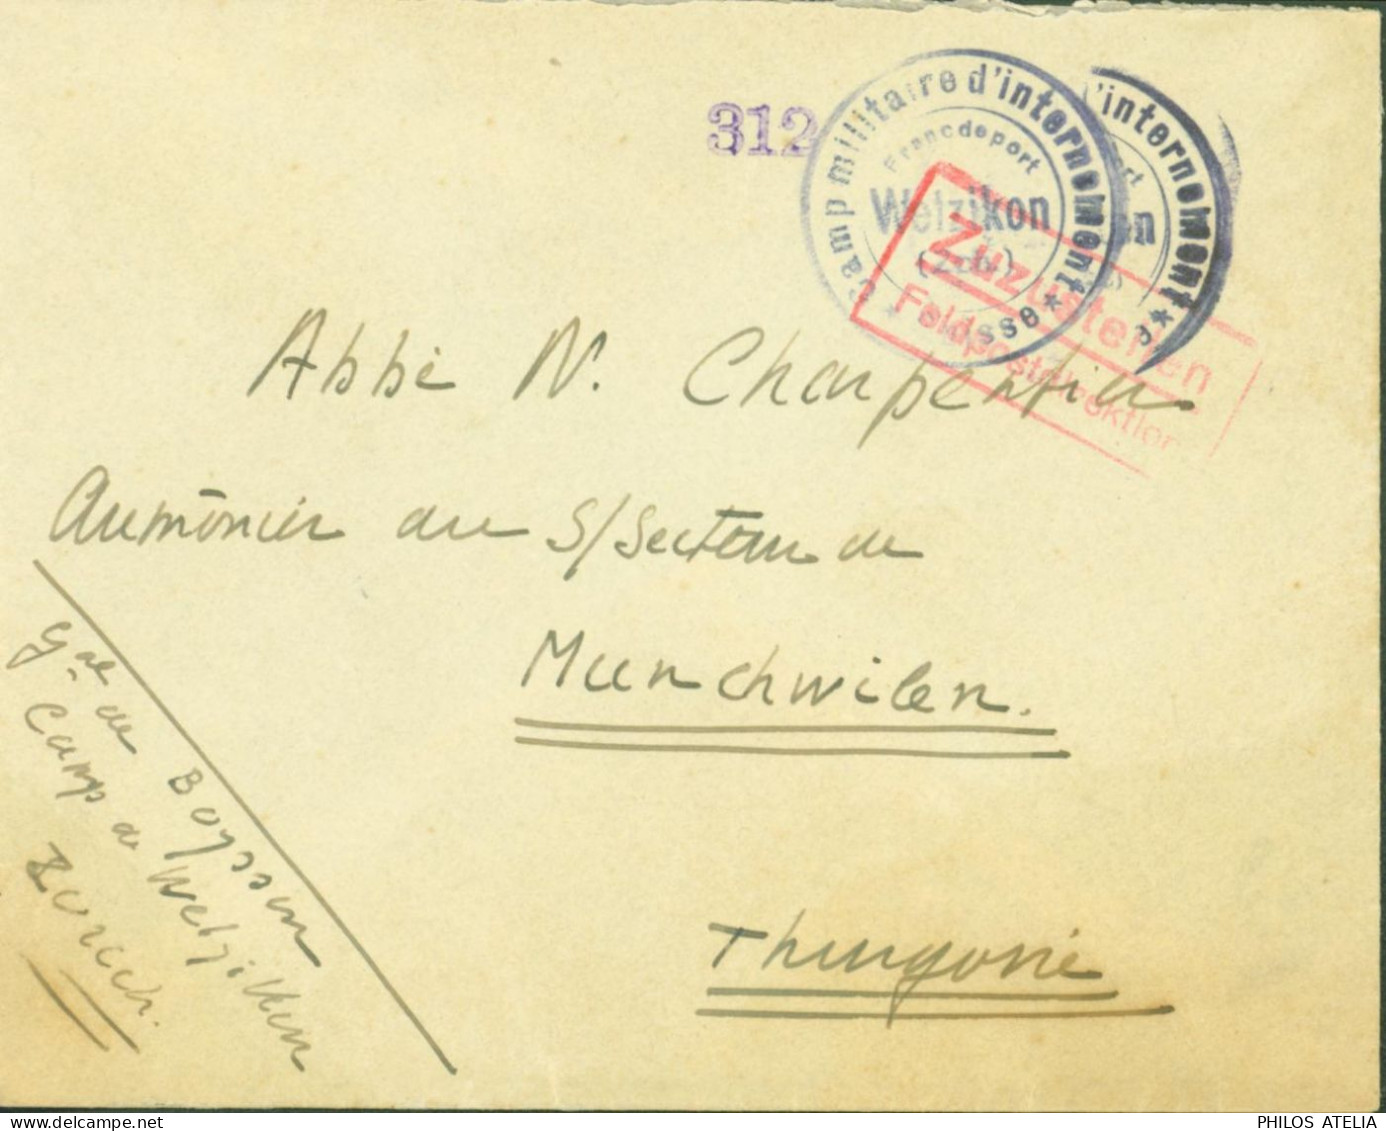 312
Camp militaire d'internement * Suisse *
Franc de port
Wetzikon
(Zch)
'internement *
Zuzustellen
Feldpostdirektion
Abbé N. Charpentier
Aumônier au S/Secteur de
Munchwilen.
Thurgovie
Gal de Boyssin
Camp de Wetzikon
Zurich.
PHILOS ATELIA